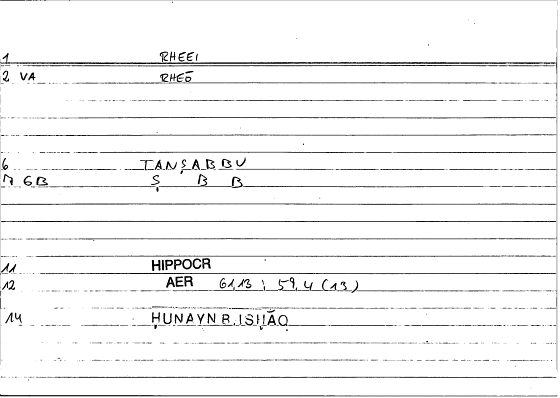 1 RHEEI
2 VA RHEŌ
6 TANṢABBU
7 GB Ṣ B B
11 HIPPOCR
12 AER 61,13 ; 59,4 (13)
14 ḤUNAYN B. ISḤĀQ